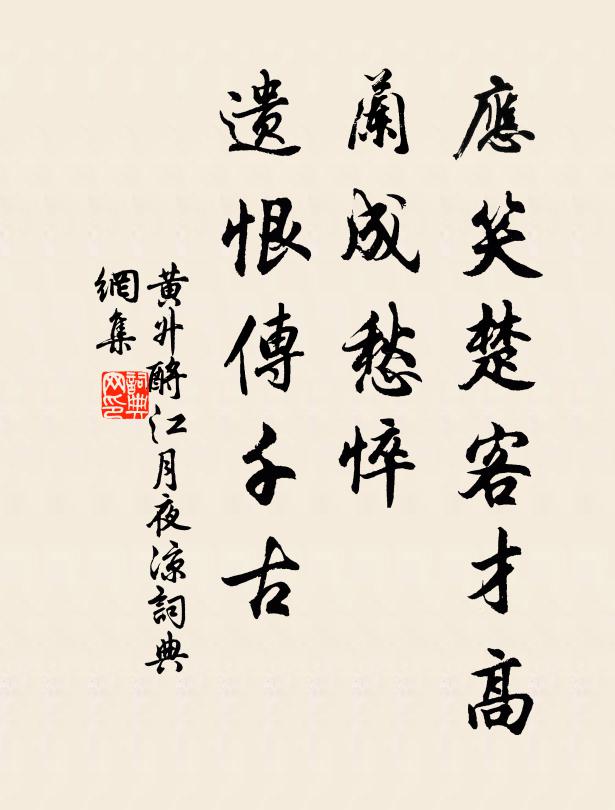 應笑楚客才高
蘭成愁悴
遺恨傳千古
黃升酹江月夜涼詞典
網集
詞典網印